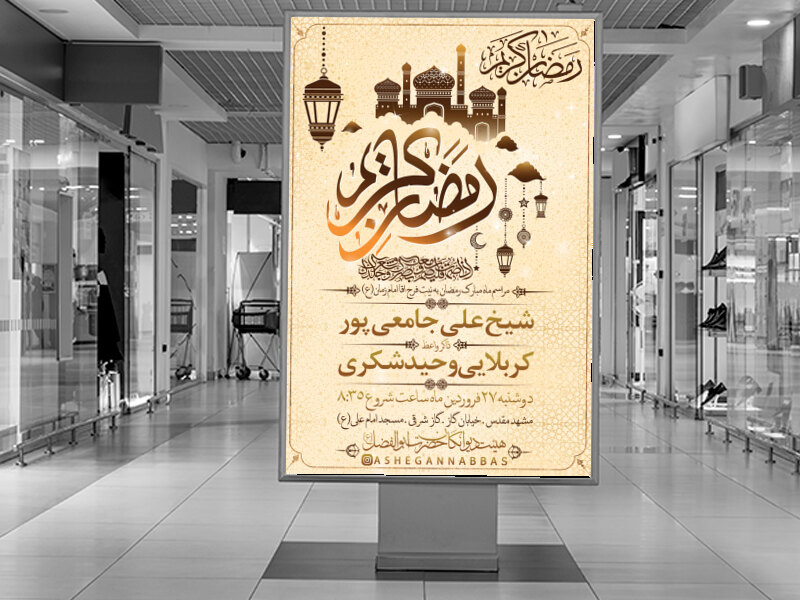 رمضان کریم
رمضان کریم
مراسم ماه مبارک رمضان به نیت فرج اقا امام زمان (ع)
شیخ علی جامعی پور
ذاکر و اعظ
کربلایی وحید شکری
دوشنبه ۲۷ فروردین ماه ساعت شروع ۸:۳۵
مشهد مقدس . خیابان گاز . گاز شرقی . مسجد امام علی (ع)
هیئت دیوانگان حضرت ابوالفضل
@ASHEGANNABBAS